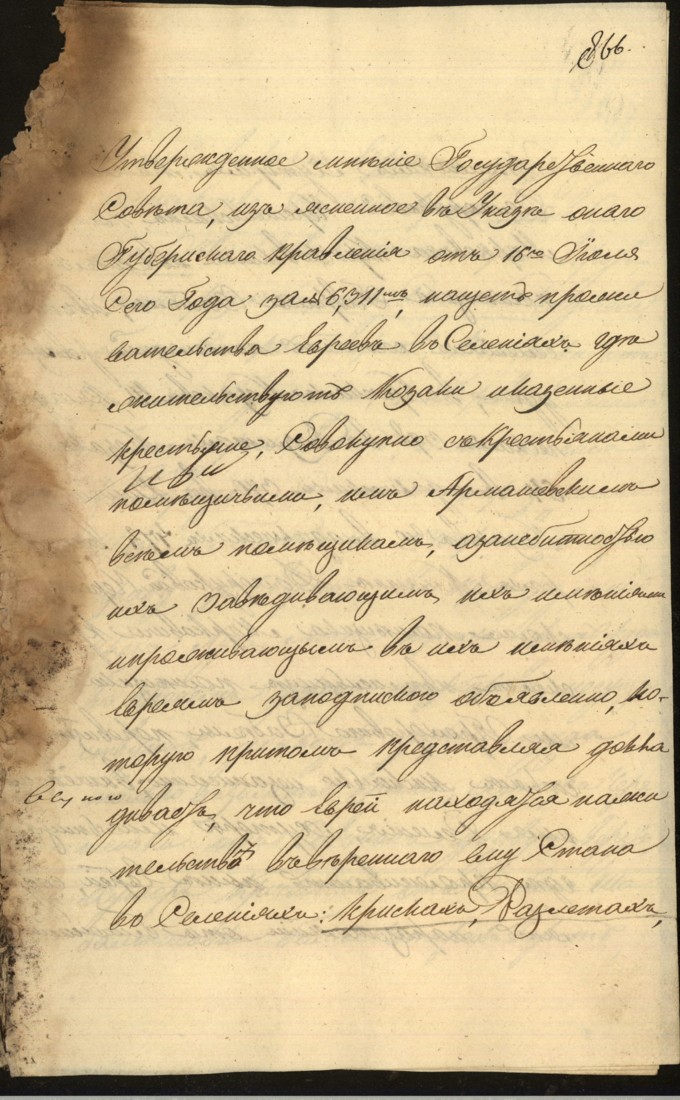 866.
Утвержденное мнѣніе Государственнаго
Совѣта, изъясненное въ Указѣ онаго
Губернскаго правленія отъ 16го Іюля
сего Года за № 6,311мъ, нащетъ прожи
вательства Евреевъ въ Селеніяхъ гдѣ
жительствуютъ Козаки иказенные
крестьяне, Совокупно съкрестьянами
помѣщичьими, имъ Армашевскимъ
всѣмъ помѣщикамъ, азанебитностью
ихъ завѣдивающимъ ихъ имѣніями
ипроживающымъ въ ихъ имѣніяхъ
евреямъ заподпискою объявленно, ко-
торую притомъ представляя доно
диваетъ, что Еврей находятся на жи
тельствѣ въвѣреннаго ему Стана
во Селеніяхъ: Крискахъ, Разлетахъ,